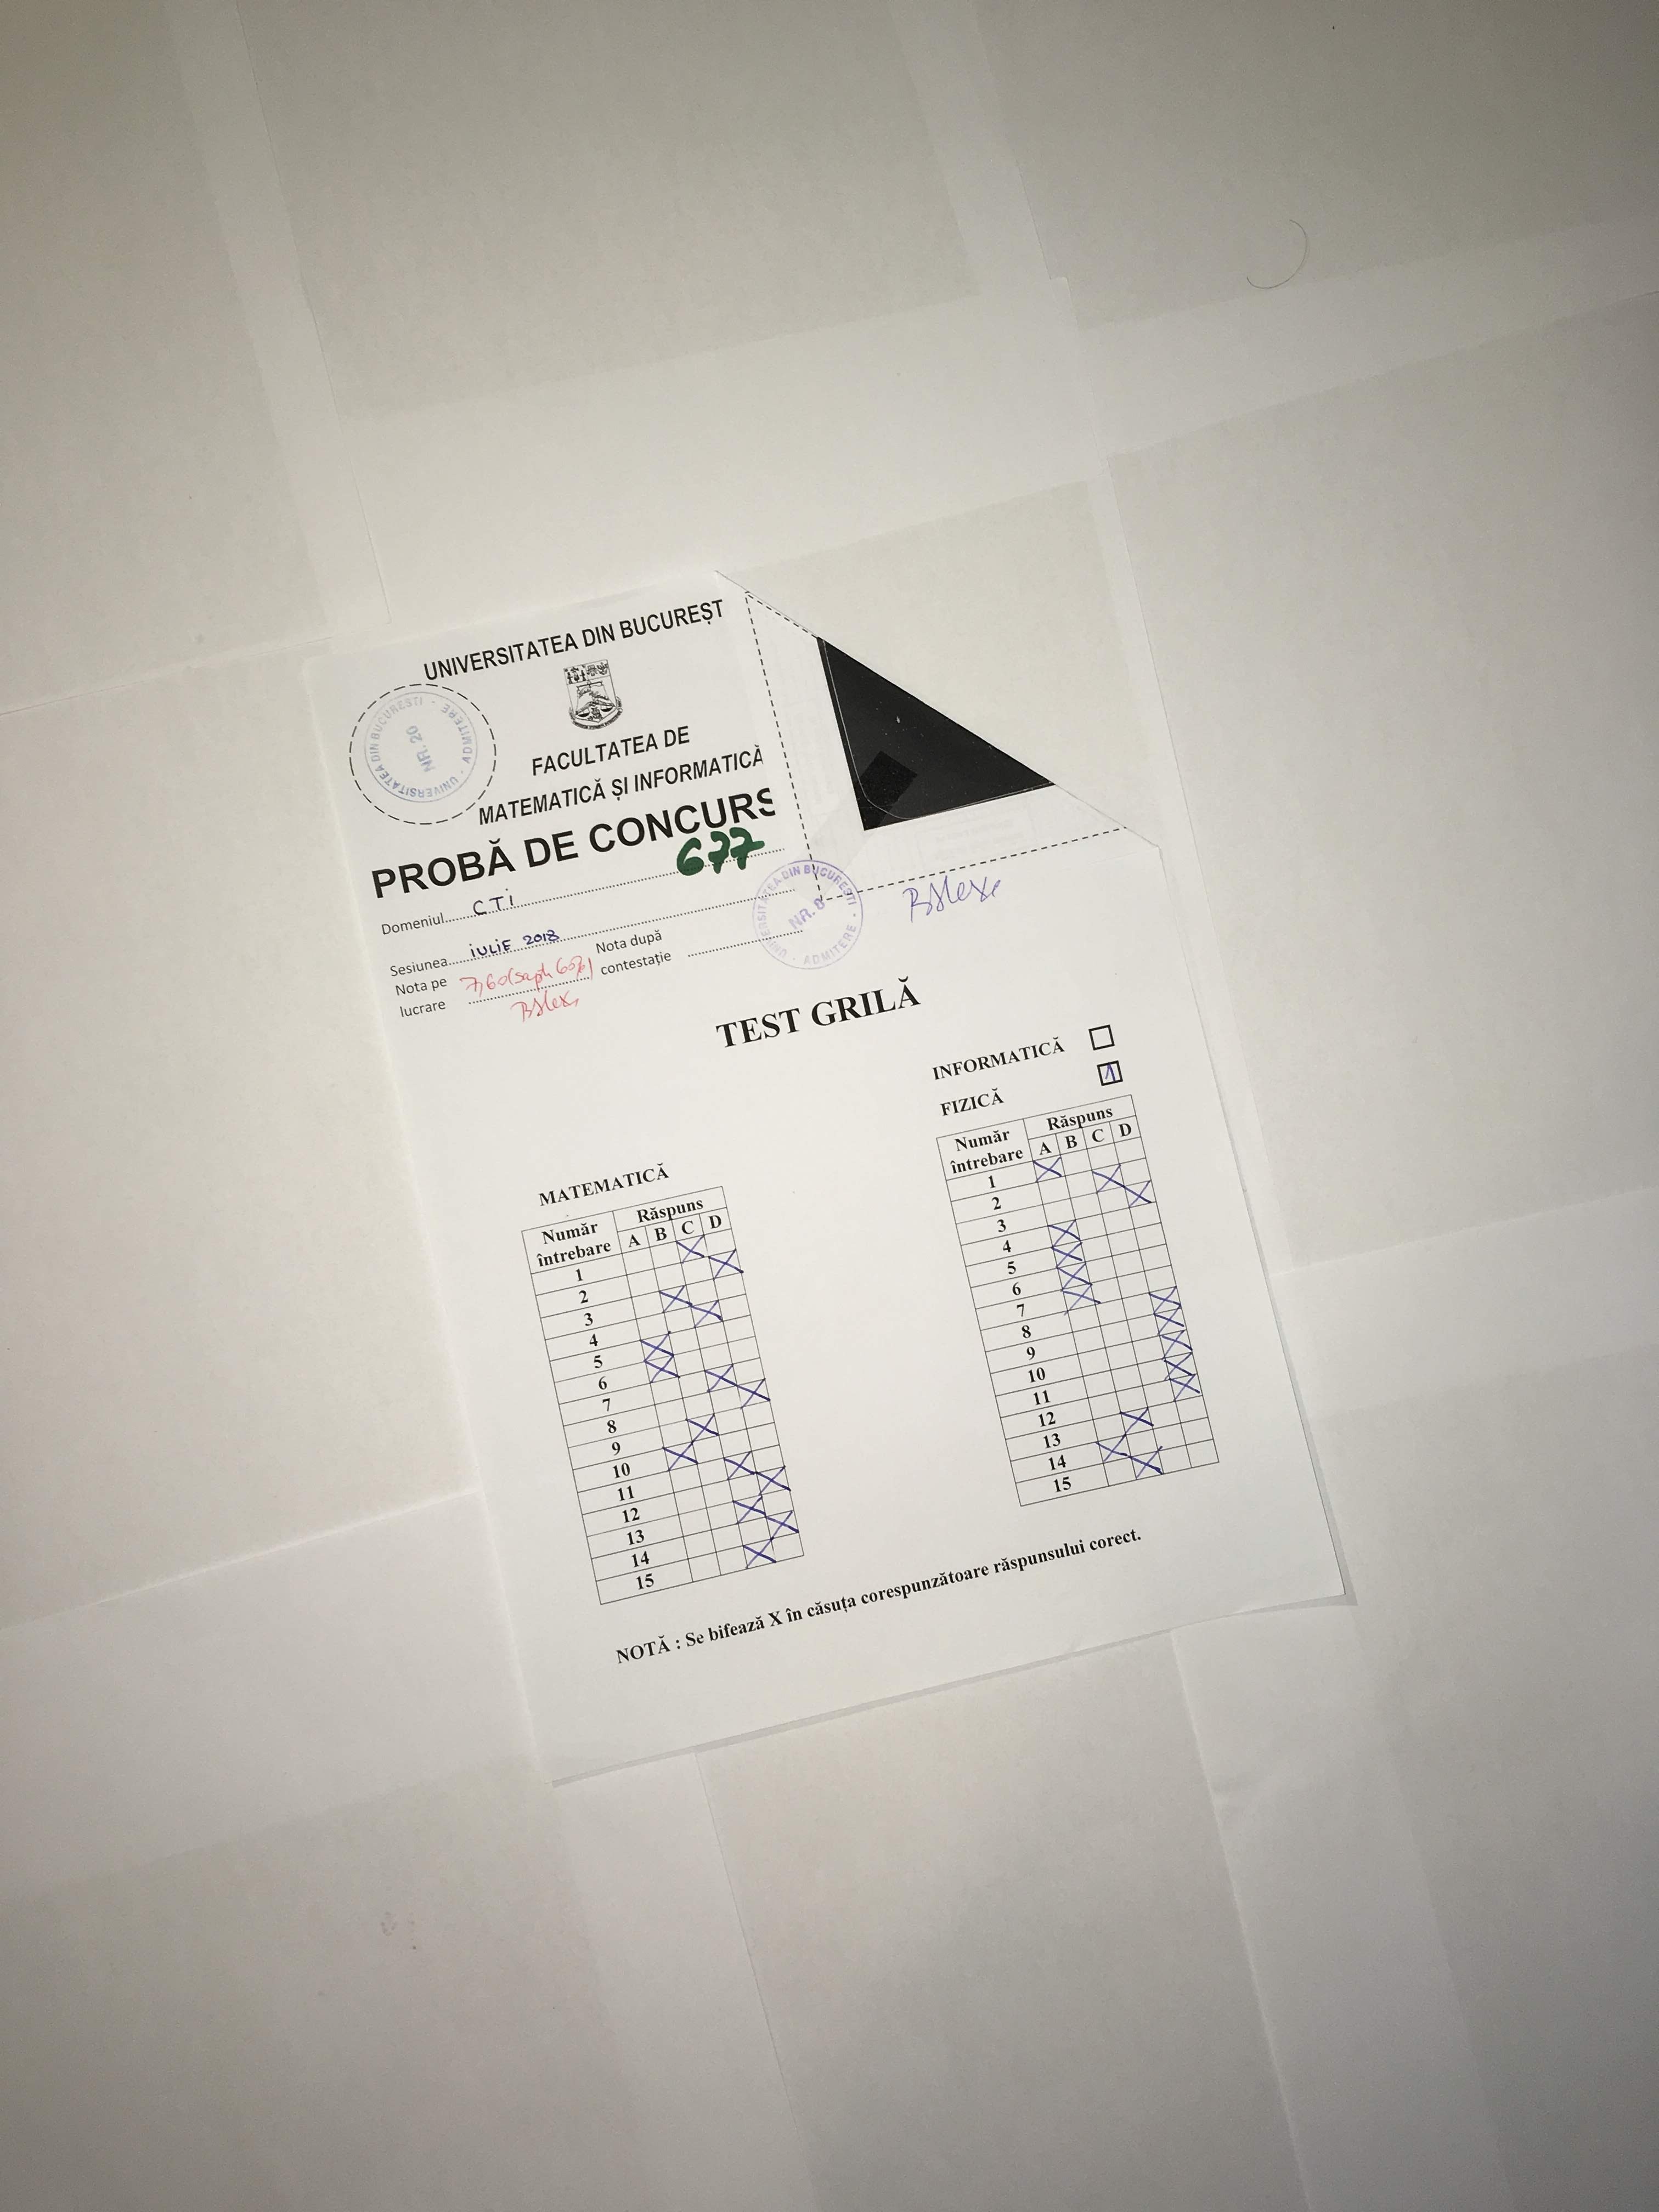 UNIVERSITATEA DIN BUCUREȘT
UNIVERSITATEA DIN BUCURESTI - ADMITERE
NR. 20
FACULTATEA DE
MATEMATICĂ ȘI INFORMATICĂ
PROBĂ DE CONCURS
677
Domeniul CTI
Sesiunea iULiE 2018
Nota pe lucrare 7,60
Nota după contestație
UNIVERSITATEA DIN BUCURESTI - ADMITERE
NR. 8
TEST GRILĂ
INFORMATICĂ
FIZICĂ
MATEMATICĂ
Număr întrebare Răspuns
A B C D
1 X
2 X
3 X
4 X
5 X
6 X
7 X
8 X
9 X
10 X
11 X
12 X
13 X
14 X
15 X
Număr întrebare Răspuns
A B C D
1 X
2 X
3 X
4 X
5 X
6 X
7 X
8 X
9 X
10 X
11 X
12 X
13 X
14 X
15 X
NOTĂ : Se bifează X în căsuța corespunzătoare răspunsului corect.